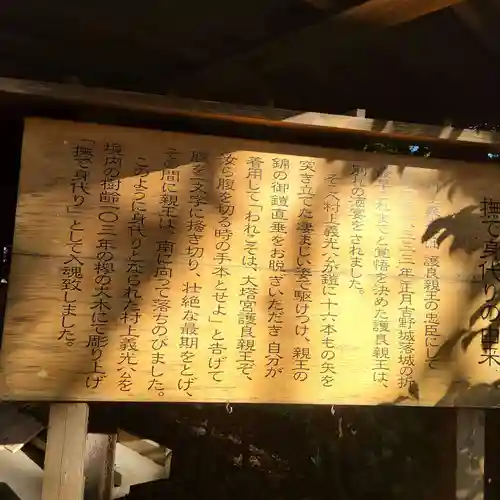 撫で身代りの由来
護良親王の忠臣にして
三三三年正月吉野城落城の折
これまでと覚悟を決めた護良親王は、
別れの酒宴をされました。
そこへ村上義光公が鎧に十六本もの矢を
突き立てた凄まじい姿で駆けつけ、親王の
錦の御鎧直垂をお脱ぎいただき自分が
着用して「われこそは、大塔宮護良親王ぞ、
汝ら腹を切る時の手本とせよ」と告げて
腹を一文字に掻き切り、壮絶な最期をとげ、
その間に親王は、南に向って落ちのびました。
このように身代りとなられた村上義光公を
境内の樹齢一〇三年の桜の大木にて彫り上げ
「撫で身代り」として入魂致しました。